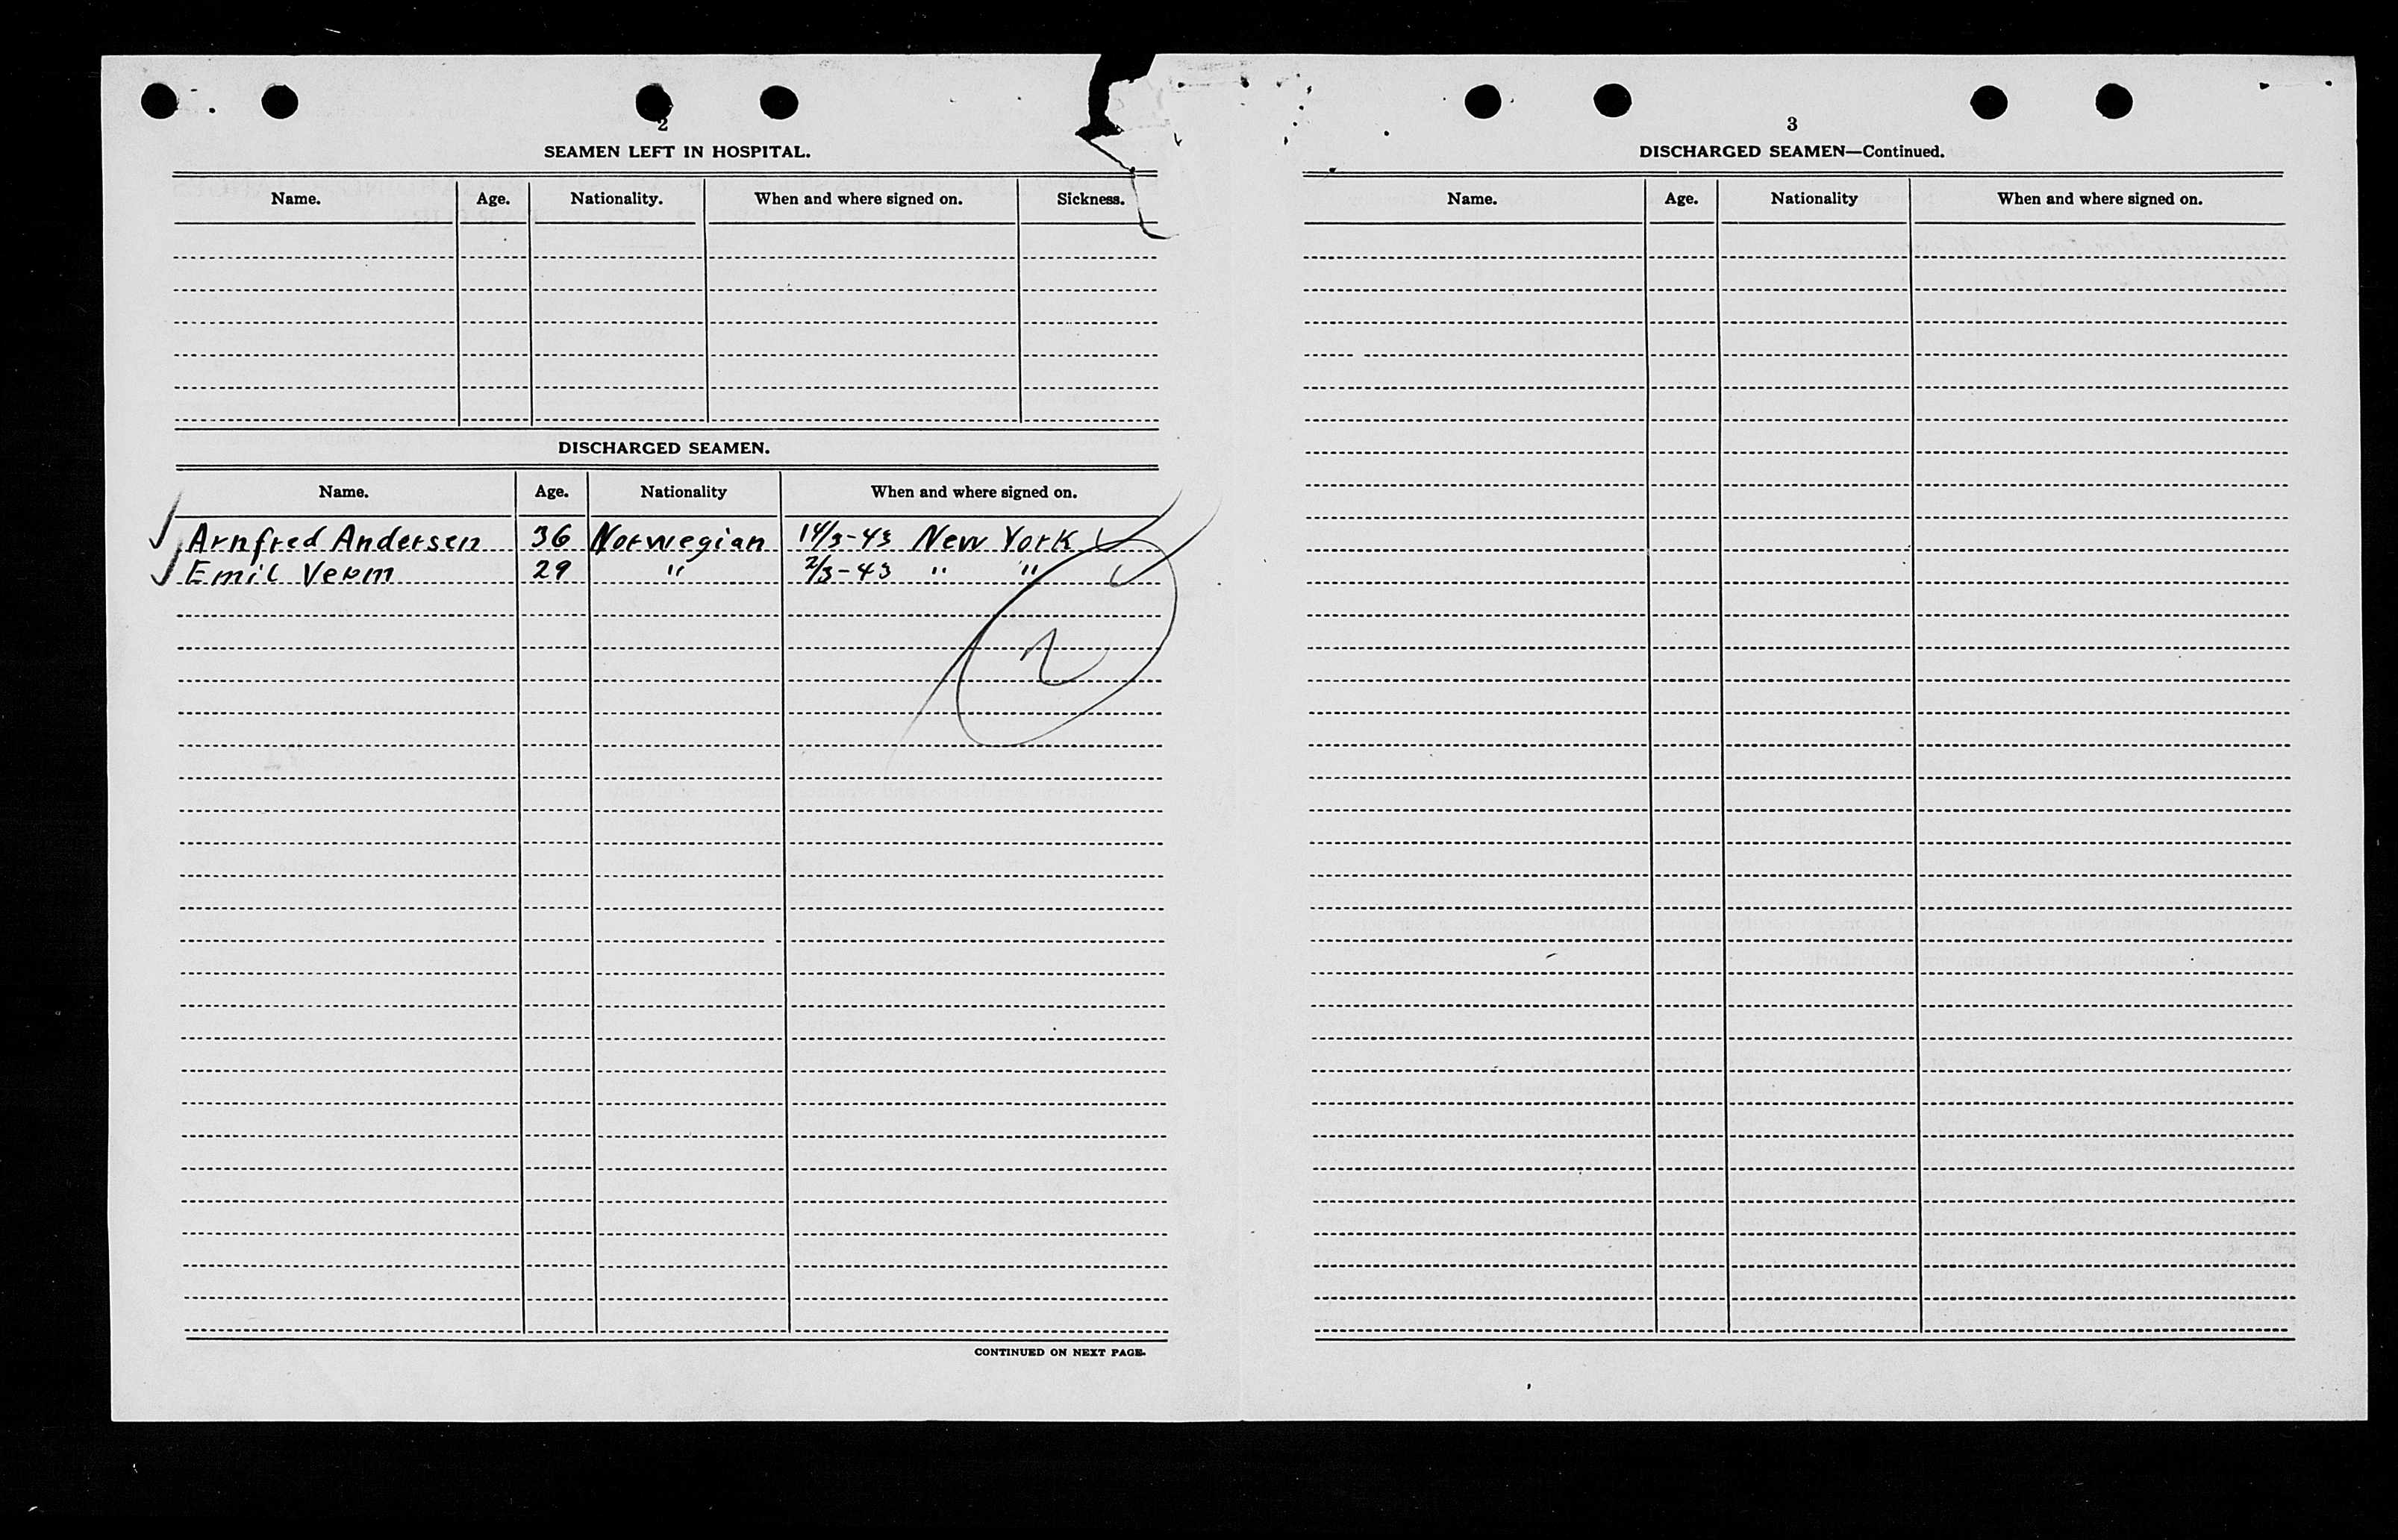 2
SEAMEN LEFT IN HOSPITAL.
Name. Age. Nationality. When and where signed on. Sickness.
DISCHARGED SEAMEN.
Name. Age. Nationality When and where signed on.
Arnfred Andersen 36 Norwegian 14/3-43 New York
Emil 29 " 2/3-43 " "
2
CONTINUED ON NEXT PAGE.
3
DISCHARGED SEAMEN—Continued.
Name. Age. Nationality When and where signed on.